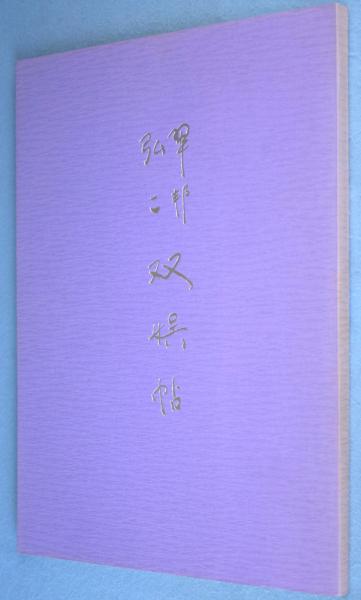 翠邦
弘二
双娯帖